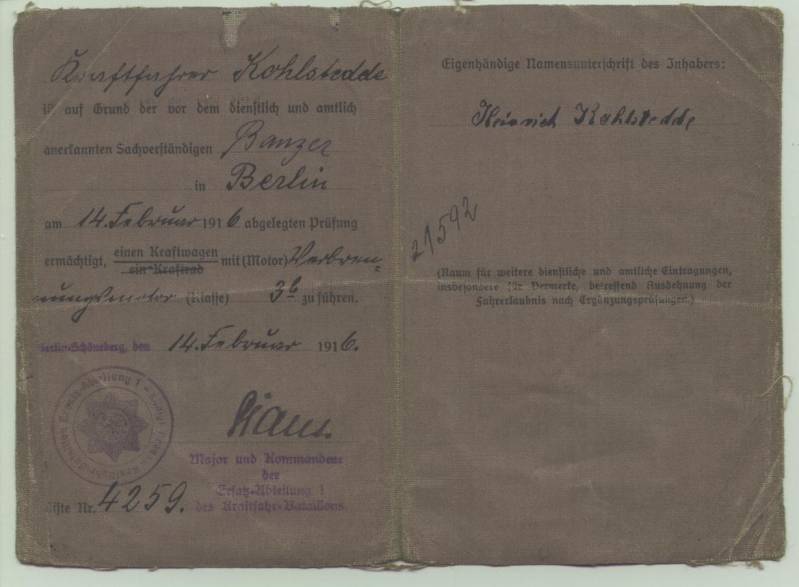 Kraftfahrer Kohlstedde
ist auf Grund der vor dem dienstlich und amtlich
anerkannten Sachverständigen Banzer
in Berlin
am 14. Februar 1916 abgelegten Prüfung
ermächtigt, einen Kraftwagen mit (Motor) Verbren-
ein Kraftrad
nungsmotor (Klasse) 3b zu führen.
Berlin-Schöneberg, den 14. Februar 1916.
Major und Kommandeur
der
Ersatz-Abteilung 1
des Kraftfahr-Bataillons.
Liste Nr. 4259.
Eigenhändige Namensunterschrift des Inhabers:
Heinrich Kohlstedde
21592
(Raum für weitere dienstliche und amtliche Eintragungen,
insbesondere für Vermerke, betreffend Ausdehnung der
Fahrerlaubnis nach Ergänzungsprüfungen.)